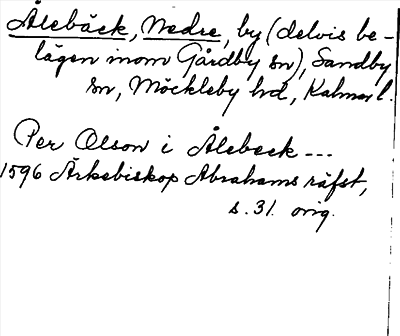 Ålebäck, Nedre, by (delvis be-
lägen inom Gårdby sn), Sandby
sn, Möckleby hd, Kalmar l.
Per Olson i Ålebeck ---
1596 Ärkebiskop Abrahams räfst,
s. 31. orig.